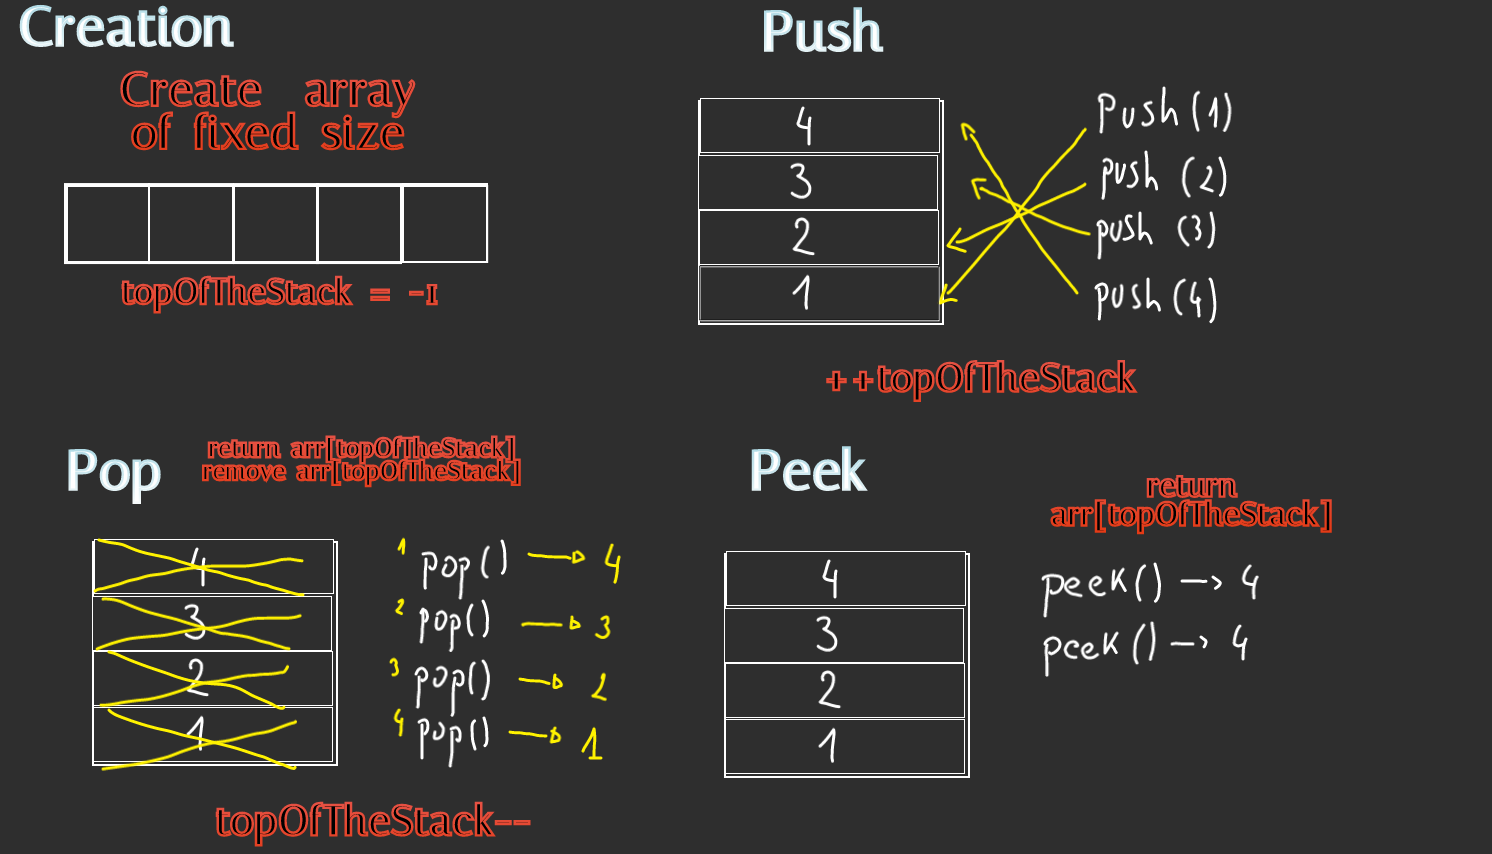 Creation
Create array
of fixed size
topOfTheStack = -1
Push
4
3
2
1
Push(1)
push (2)
push (3)
push(4)
++topOfTheStack
Pop
return arr[topOfTheStack]
remove arr[topOfTheStack]
4
3
2
1
1 pop() → 4
2 pop() → 3
3 pop() → 2
4 pop() → 1
topOfTheStack--
Peek
return
arr[topOfTheStack]
4
3
2
1
peek() → 4
peek() → 4